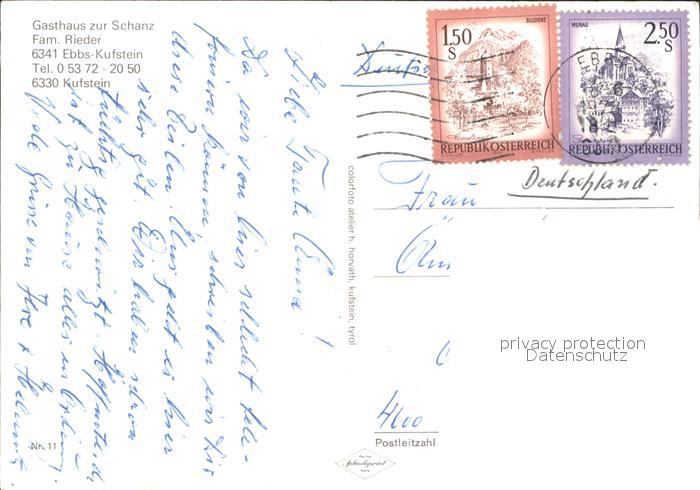 Gasthaus zur Schanz
Fam. Rieder
6341 Ebbs-Kufstein
Tel. 0 53 72 - 20 50
6330 Kufstein
Liebe Tante Änne!
Da wir von hier schlecht tele-
fonieren können, schreiben wir Dir
diese Zeilen. Uns geht es hier
sehr gut. Wir haben schon
tüchtig
ist zu Hause alles in Ordnung.
Viele Grüße von Ilse + Helmut
Nr. 11
colorfoto atelier h. horvath, kufstein, tyrol
BLUDENZ
1.50
S
REPUBLIK ÖSTERREICH
MURAU
2.50
S
REPUBLIK ÖSTERREICH
EBBS
Deutschland.
Frau
4600
Postleitzahl
privacy protection
Datenschutz